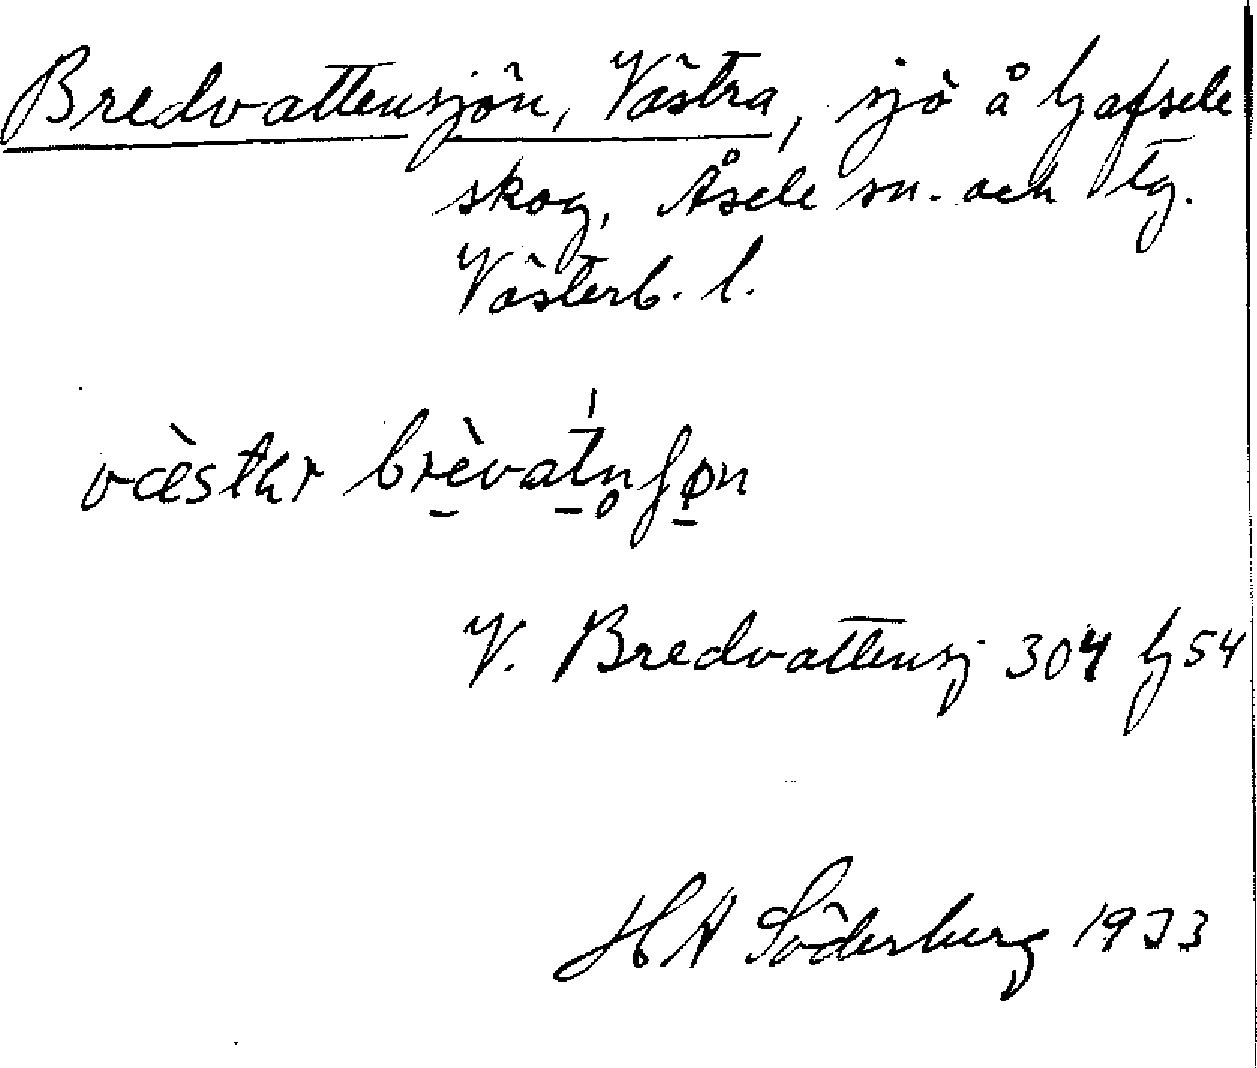 Bredvattensjön, Västra, sjö å Gafsele
skog, Åsele sn. och tg.
Västerb. l.
V. Bredvattensj 304 Lj 54
HA Söderberg 1933